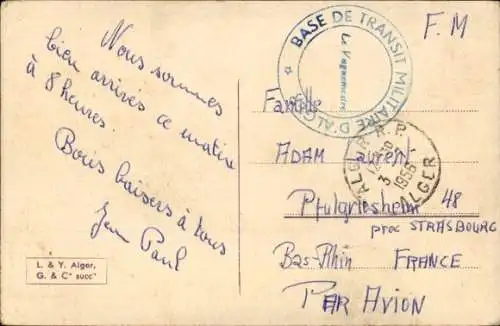 Nous sommes
bien arrivés ce matin
à 8 heures.
Bons baisers à tous
Jean Paul
L. & Y. Alger,
G. & Cº succʳ
BASE DE TRANSIT MILITAIRE D'ALGER
Le Vaguemestre
F.M
Famille
ADAM Laurent
Pfulgriesheim 48
proc STRASBOURG
Bas-Rhin FRANCE
PAR AVION
ALGER R.P.
3
1956
ALGER